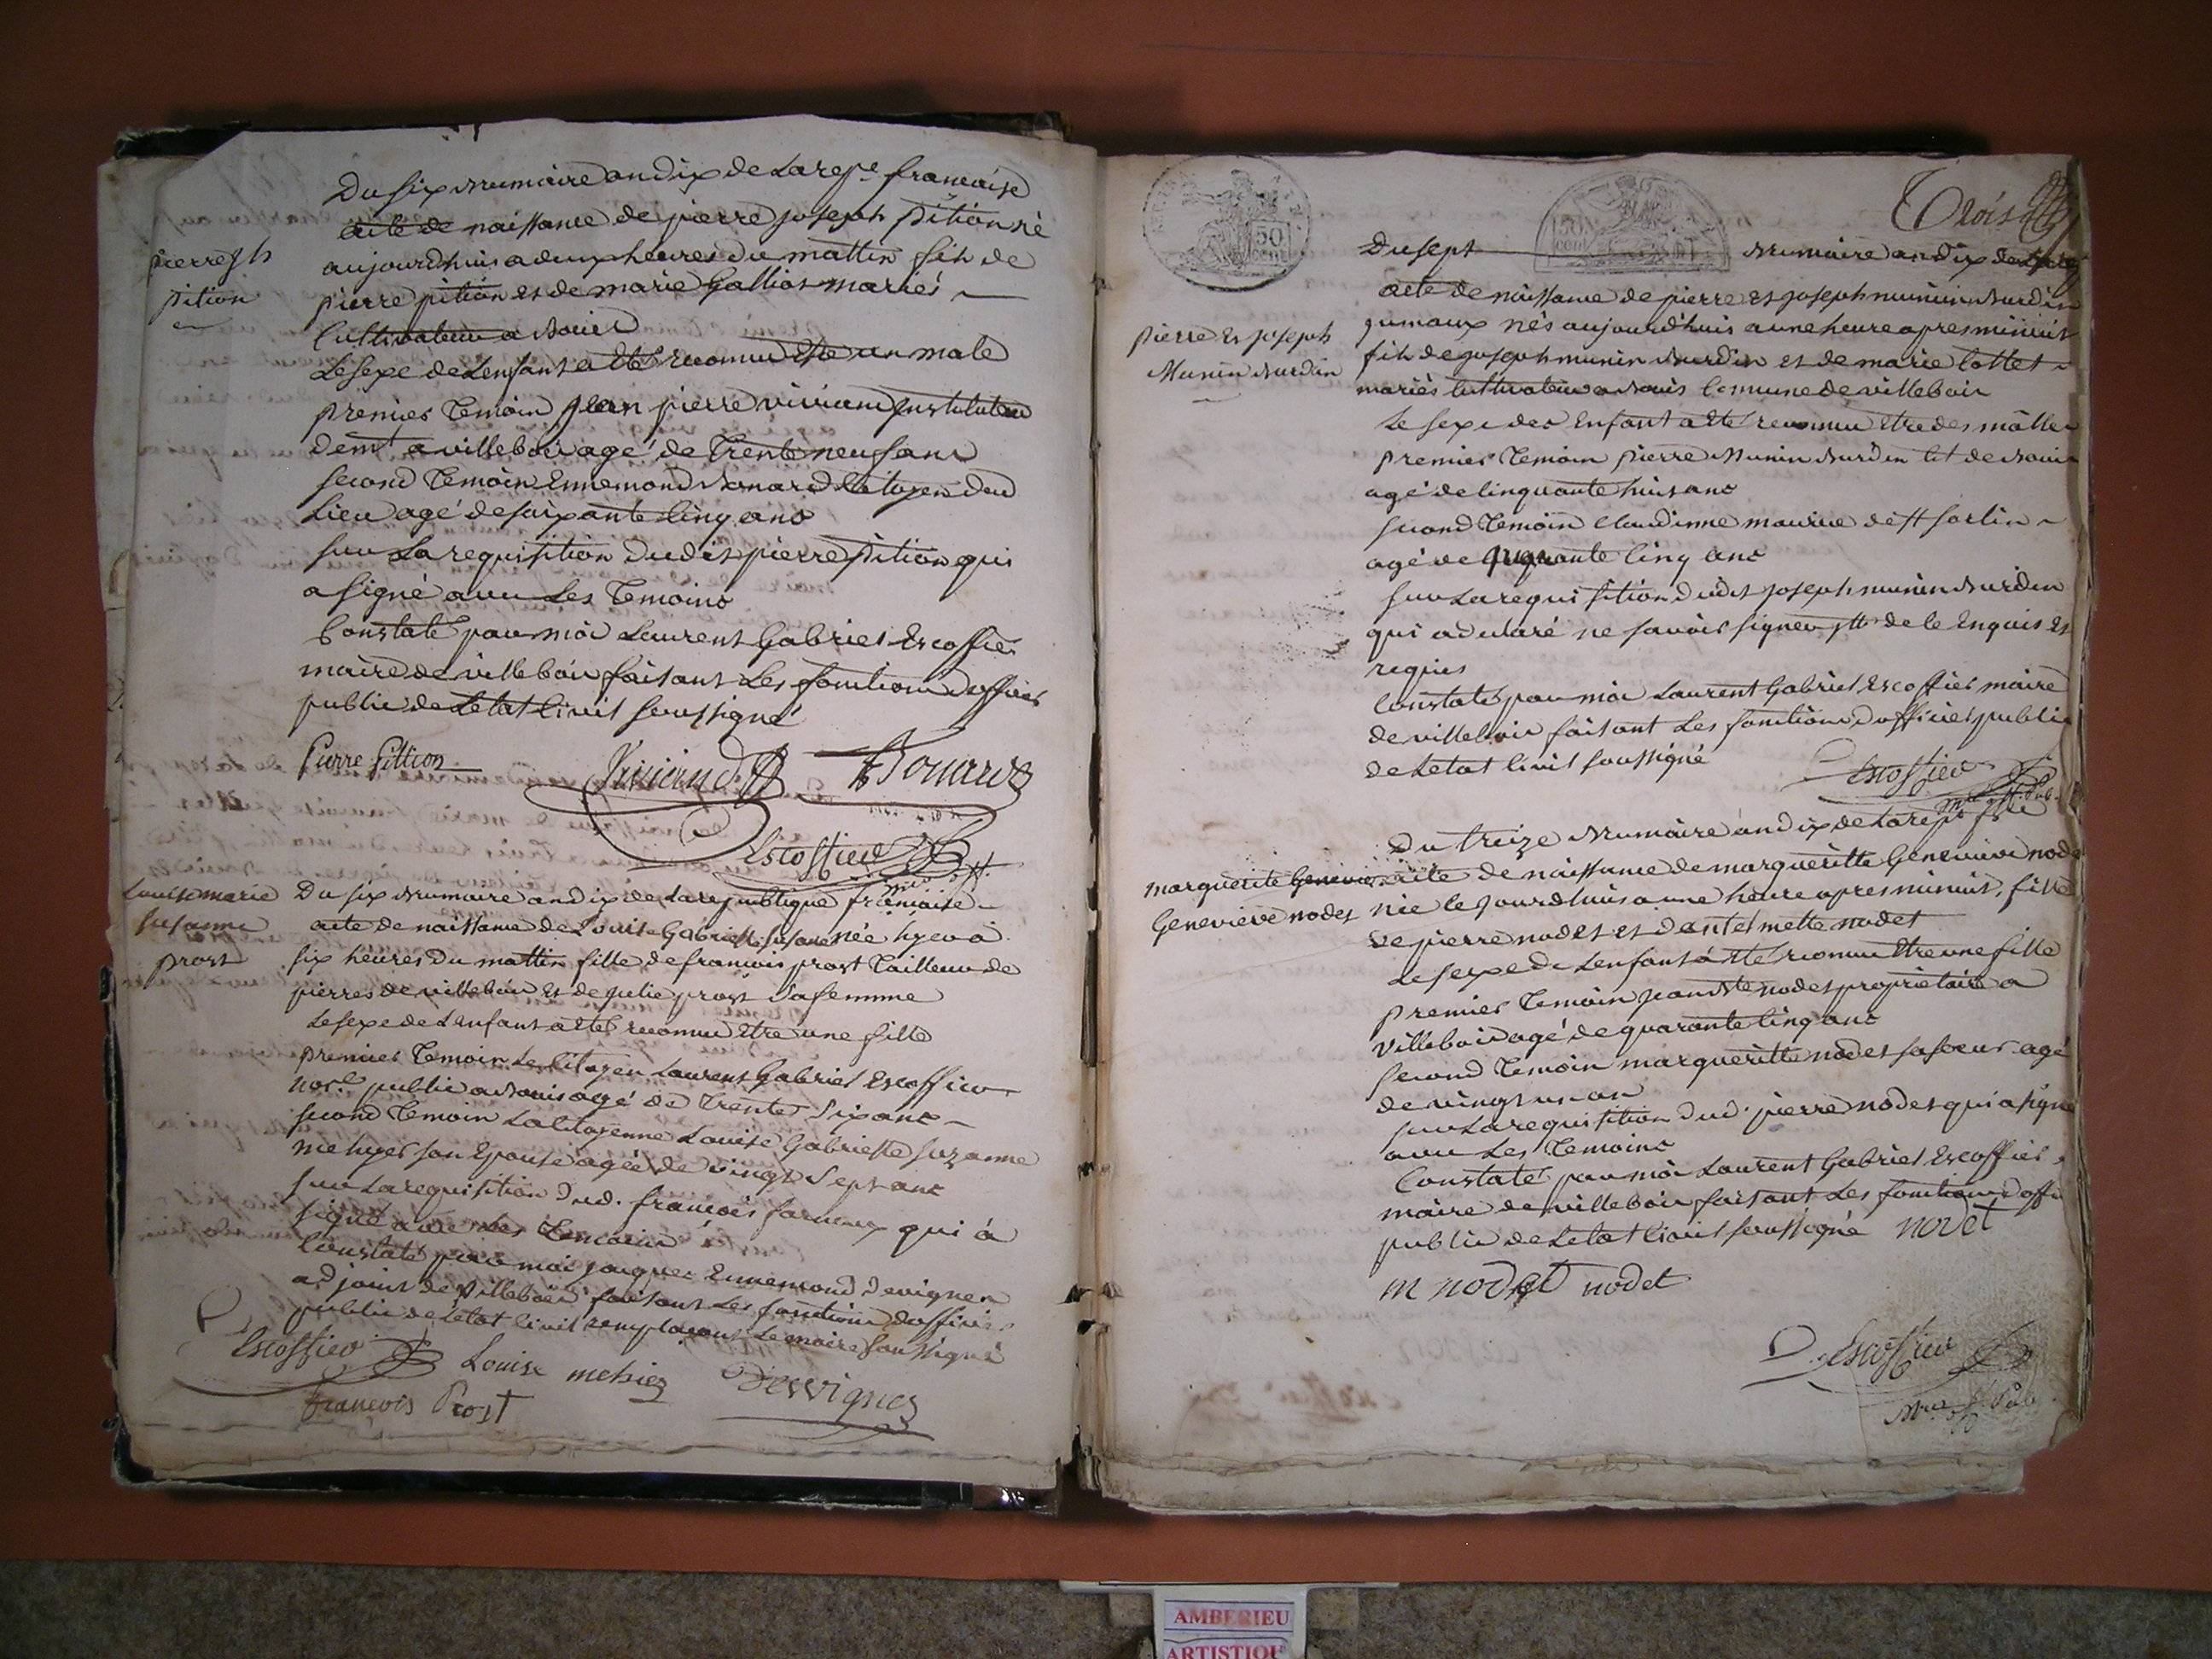 Du six brumaire an dix de la repe. francaise
acte de naissance de pierre joseph pition né
aujourdhuis a deux heures du mattin fils de
pierre pition et de marie Galliot mariés
Cultivateur a bouis
Le sexe de Lenfant a eté reconnu Etre un male
premier Temoin jean pierre viviand instituteur
demt a villebois agé de Trente neuf ans
second Temoin Ennemond bonard Citoyen dud
Lieu agé de soixante cinq ans
sur La requisition dudit pierre pition qui
a signé avec Les Temoins
Constaté par moi Laurent Gabriel Escoffier
maire de villebois faisant Les fonctions dofficier
public de Letat Civil soussigné
pierre jh
pition
Pierre Pittion
Viviand
Bonard
Escoffier
mre
Louise marie
susanne
prost
Du six brumaire an dix de La republique francaise
acte de naissance de Louise Gabrielle susane née hyer a
six heures du mattin fille de francois prost Tailleur de
pierres de villebois Et de julie prost sa femme
Le sexe de Lenfant a eté reconnu Etre une fille
premier Temoin Le Citoyen Laurent Gabriel Escoffier
notre public a bouis agé de Trente six ans
second Temoin La Citoyenne Louise Gabrielle suzanne
mehyer son Epouse agée de vingt sept ans
sur La requisition dud. francois qui a
signé avec Les Temoins
Constaté par moi jacques Ennemond Devignes
adjoint de villebois faisant Les fonctions dofficier
public de Letat Civil remplacant Le maire soussigné
Escoffier Louise mehier Desvignes
francois Prost
50
cent
50
cent
Trois
Du sept brumaire an dix de La rep
acte de naissance de pierre et joseph munin burdin
jumaux nés aujourd'huis a une heure apres minuit
fils de joseph munin burdin et de marie Collet
mariés Cultivateur a bouis Commune de villebois
Le sexe des Enfant a eté reconnu Etre des mâlles
premier Temoin pierre Munin burdin Cit de bouis
agé de Cinquante huit ans
second Temoin Claudinne maurice de st sorlin
agé de quarante Cinq ans
sur La requisition dudit joseph munin burdin
qui a declaré ne savoir signer de Ce Enquis Et
requis
Constaté par moi Laurent Gabriel Escoffier maire
de villebois faisant Les fonctions dofficier public
de Letat Civil soussigné
pierre Et joseph
Munin burdin
Escoffier
mre off. Pub.
Du treize brumaire an dix de La rep fse
acte de naissance de margueritte Genevieve nodet
née le jourdhuis a une heure apres minuit, fille
de pierre nodet et nodet
Le sexe de Lenfant a eté reconnu Etre une fille
premier Temoin jean bte nodet proprietaire a
villebois agé de quarante Cinq ans
second Temoin margueritte nodet sa soeur agé
de vingt un an
sur La requisition dud. pierre nodet qui a signé
avec Les Temoins
Constaté par moi Laurent Gabriel Escoffier
maire de villebois faisant Les fonctions doffi
public de Letat Civil soussigné nodet
marguerite Genevieve
Genevieve nodet
m nodet nodet
Escoffier
mre off Pub
AMBERIEU
ARTISTIQU